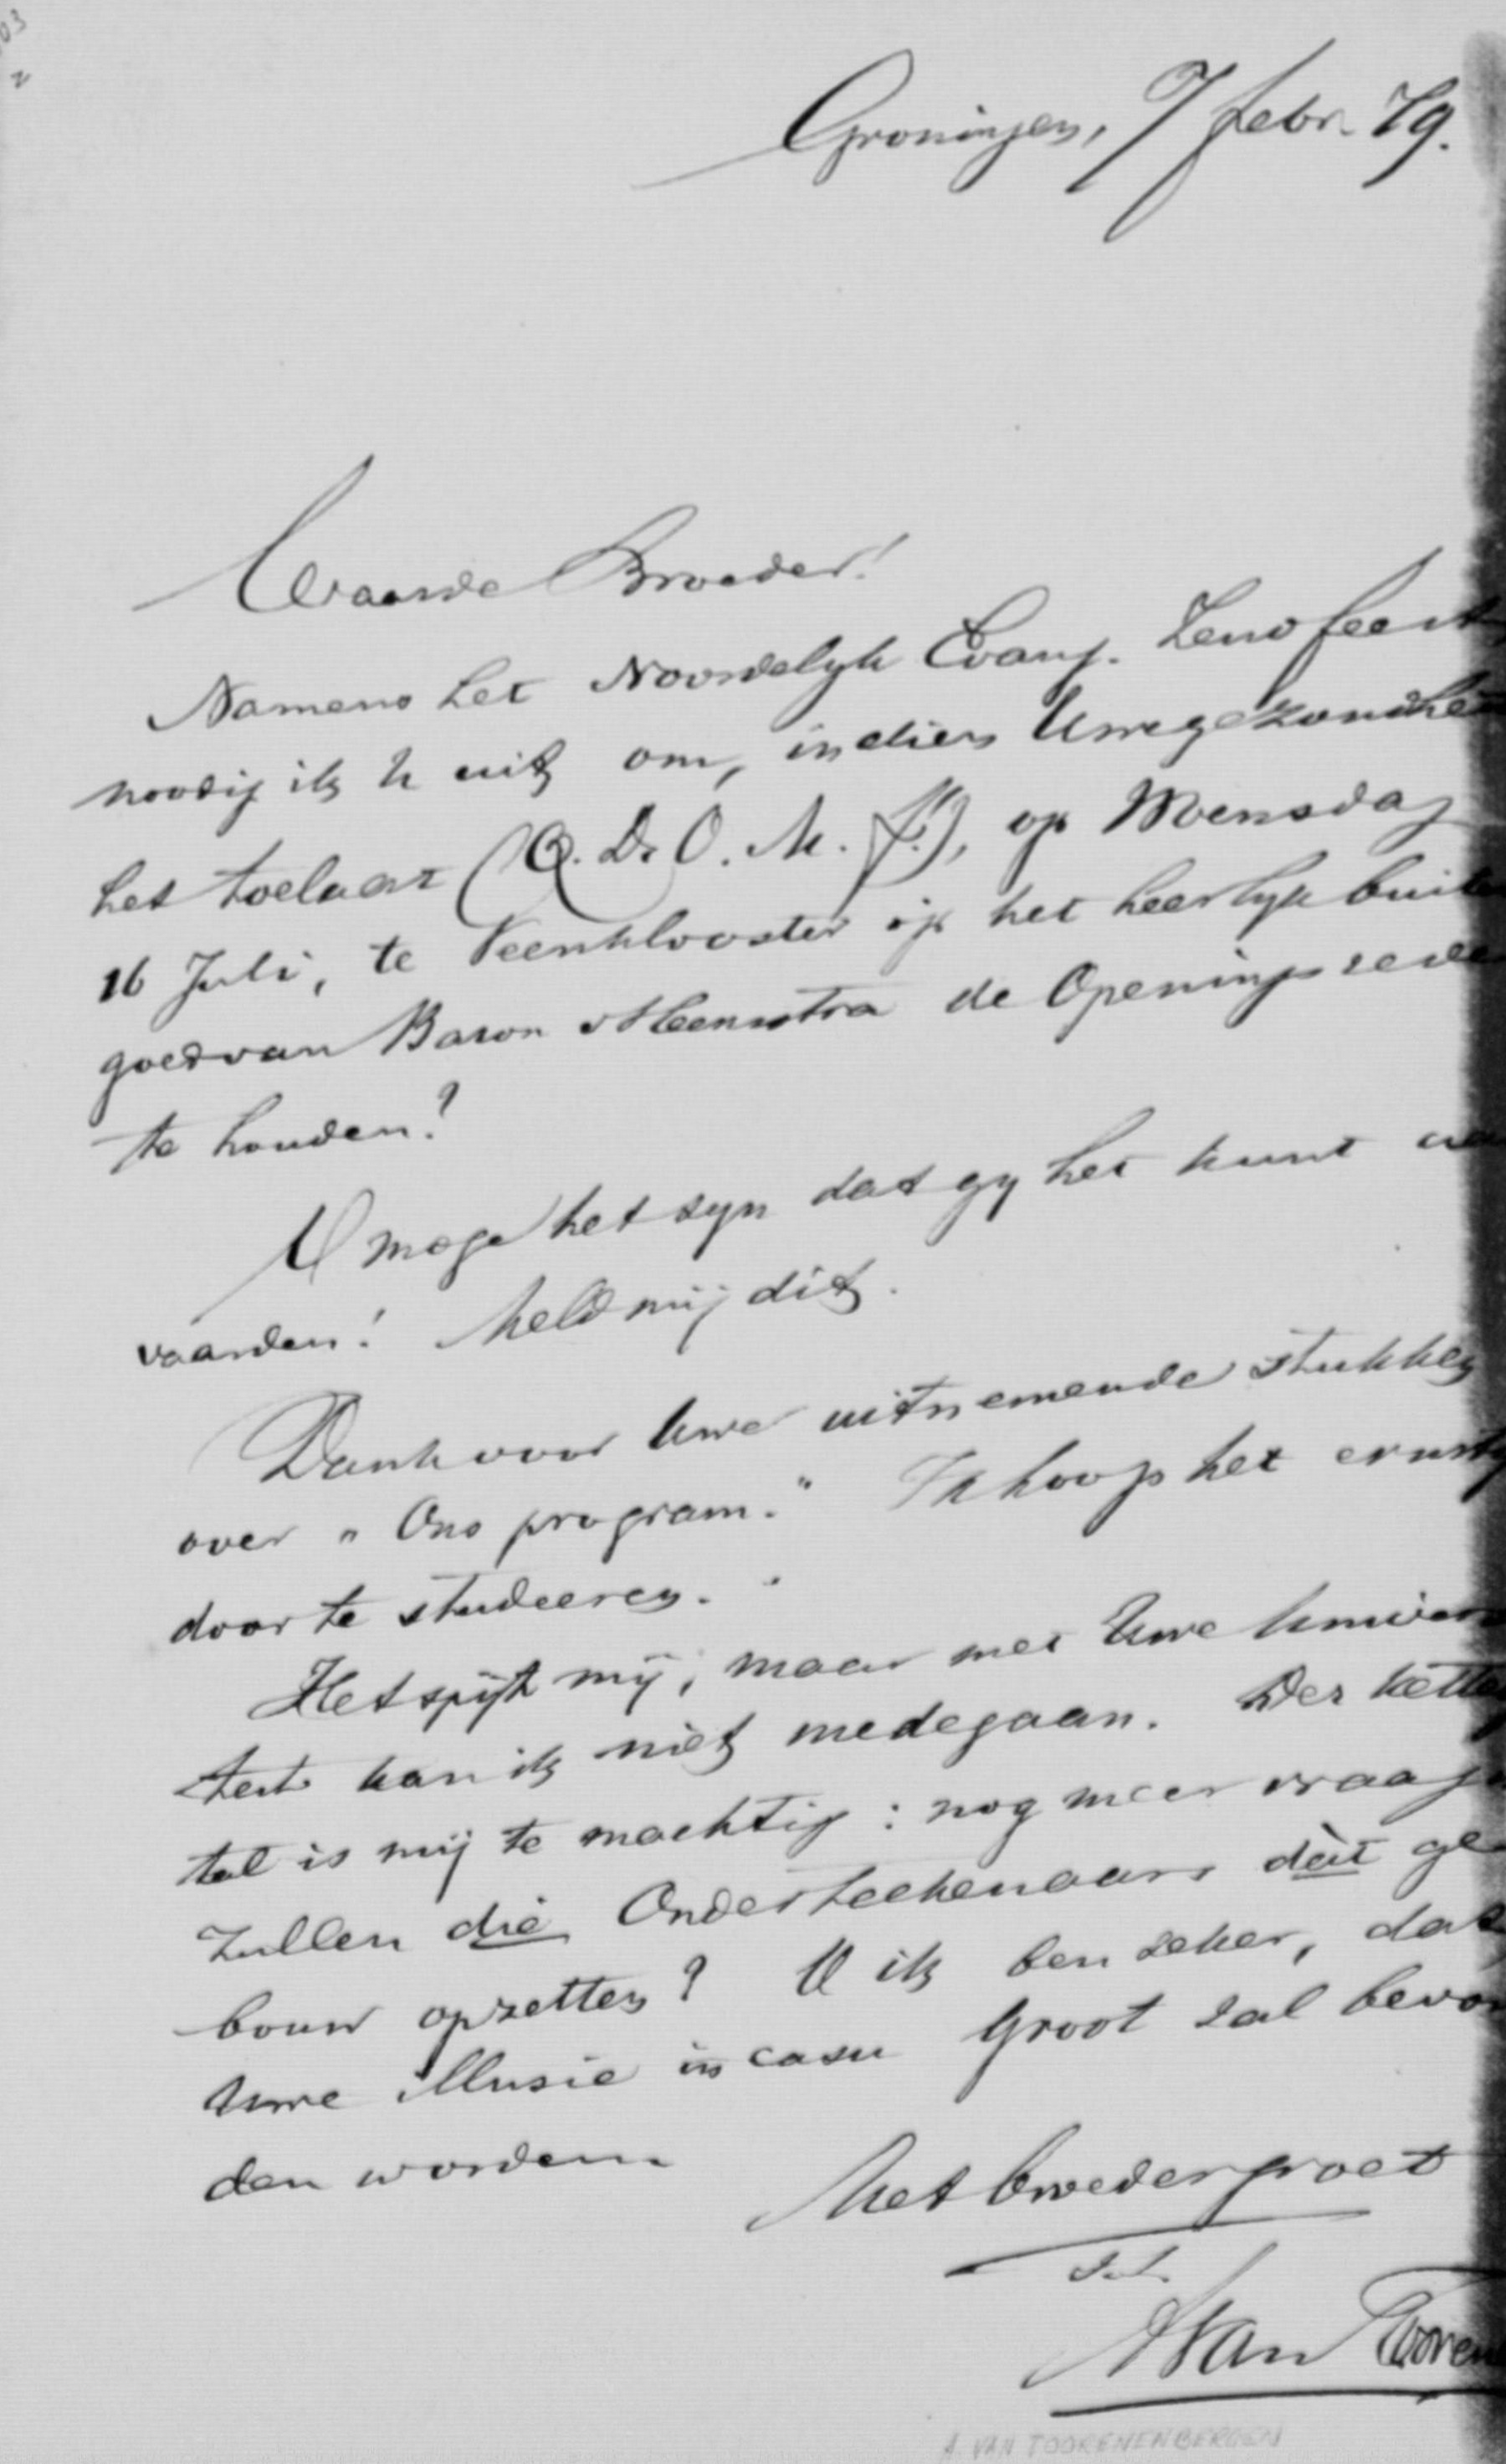 03
2
Groningen, 7 Febr. 79.
Waarde Broeder!
Namens het Noordelyk Evang. Zendfeest
noodig ik U uit om, indien Uwe gezondheid
het toelaat (Q. D. O. M. f.), op Woensdag
16 Juli, te Veenklooster op het heerlyk buiten
goed van Baron Heemstra de Openingsrede
te houden?
O moge het zyn dat gy het kunt aan
vaarden! Meld mij dit.
Dank voor Uwe uitnemende stukken
over „Ons program." Ik hoop het ernstig
door te studeeren.
Het spijt mij, maar met Uwe Univers
teit kan ik niet medegaan. Der
tal is mij te machtig: nog meer vraag
zullen die Onderteekenaars dàt ge
bouw opzetten? O ik ben zeker, dat
Uwe illusie in casu Groot zal bevon
den worden
Met broedergroet
A Van Tooren
A. VAN TOORENENBERGEN